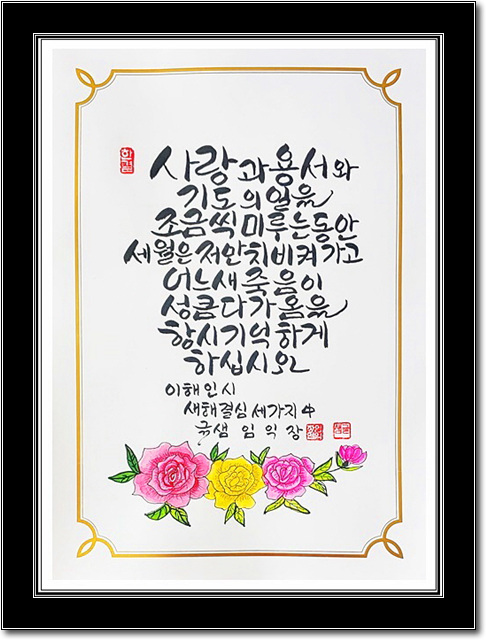 사랑과 용서와
기도의 일을
조금씩 미루는 동안
세월은 저만치 비켜 가고
어느새 죽음이
성큼 다가옴을
항시 기억하게
하십시오
이해인 시
새해결심 세가지 中
샘 임익장